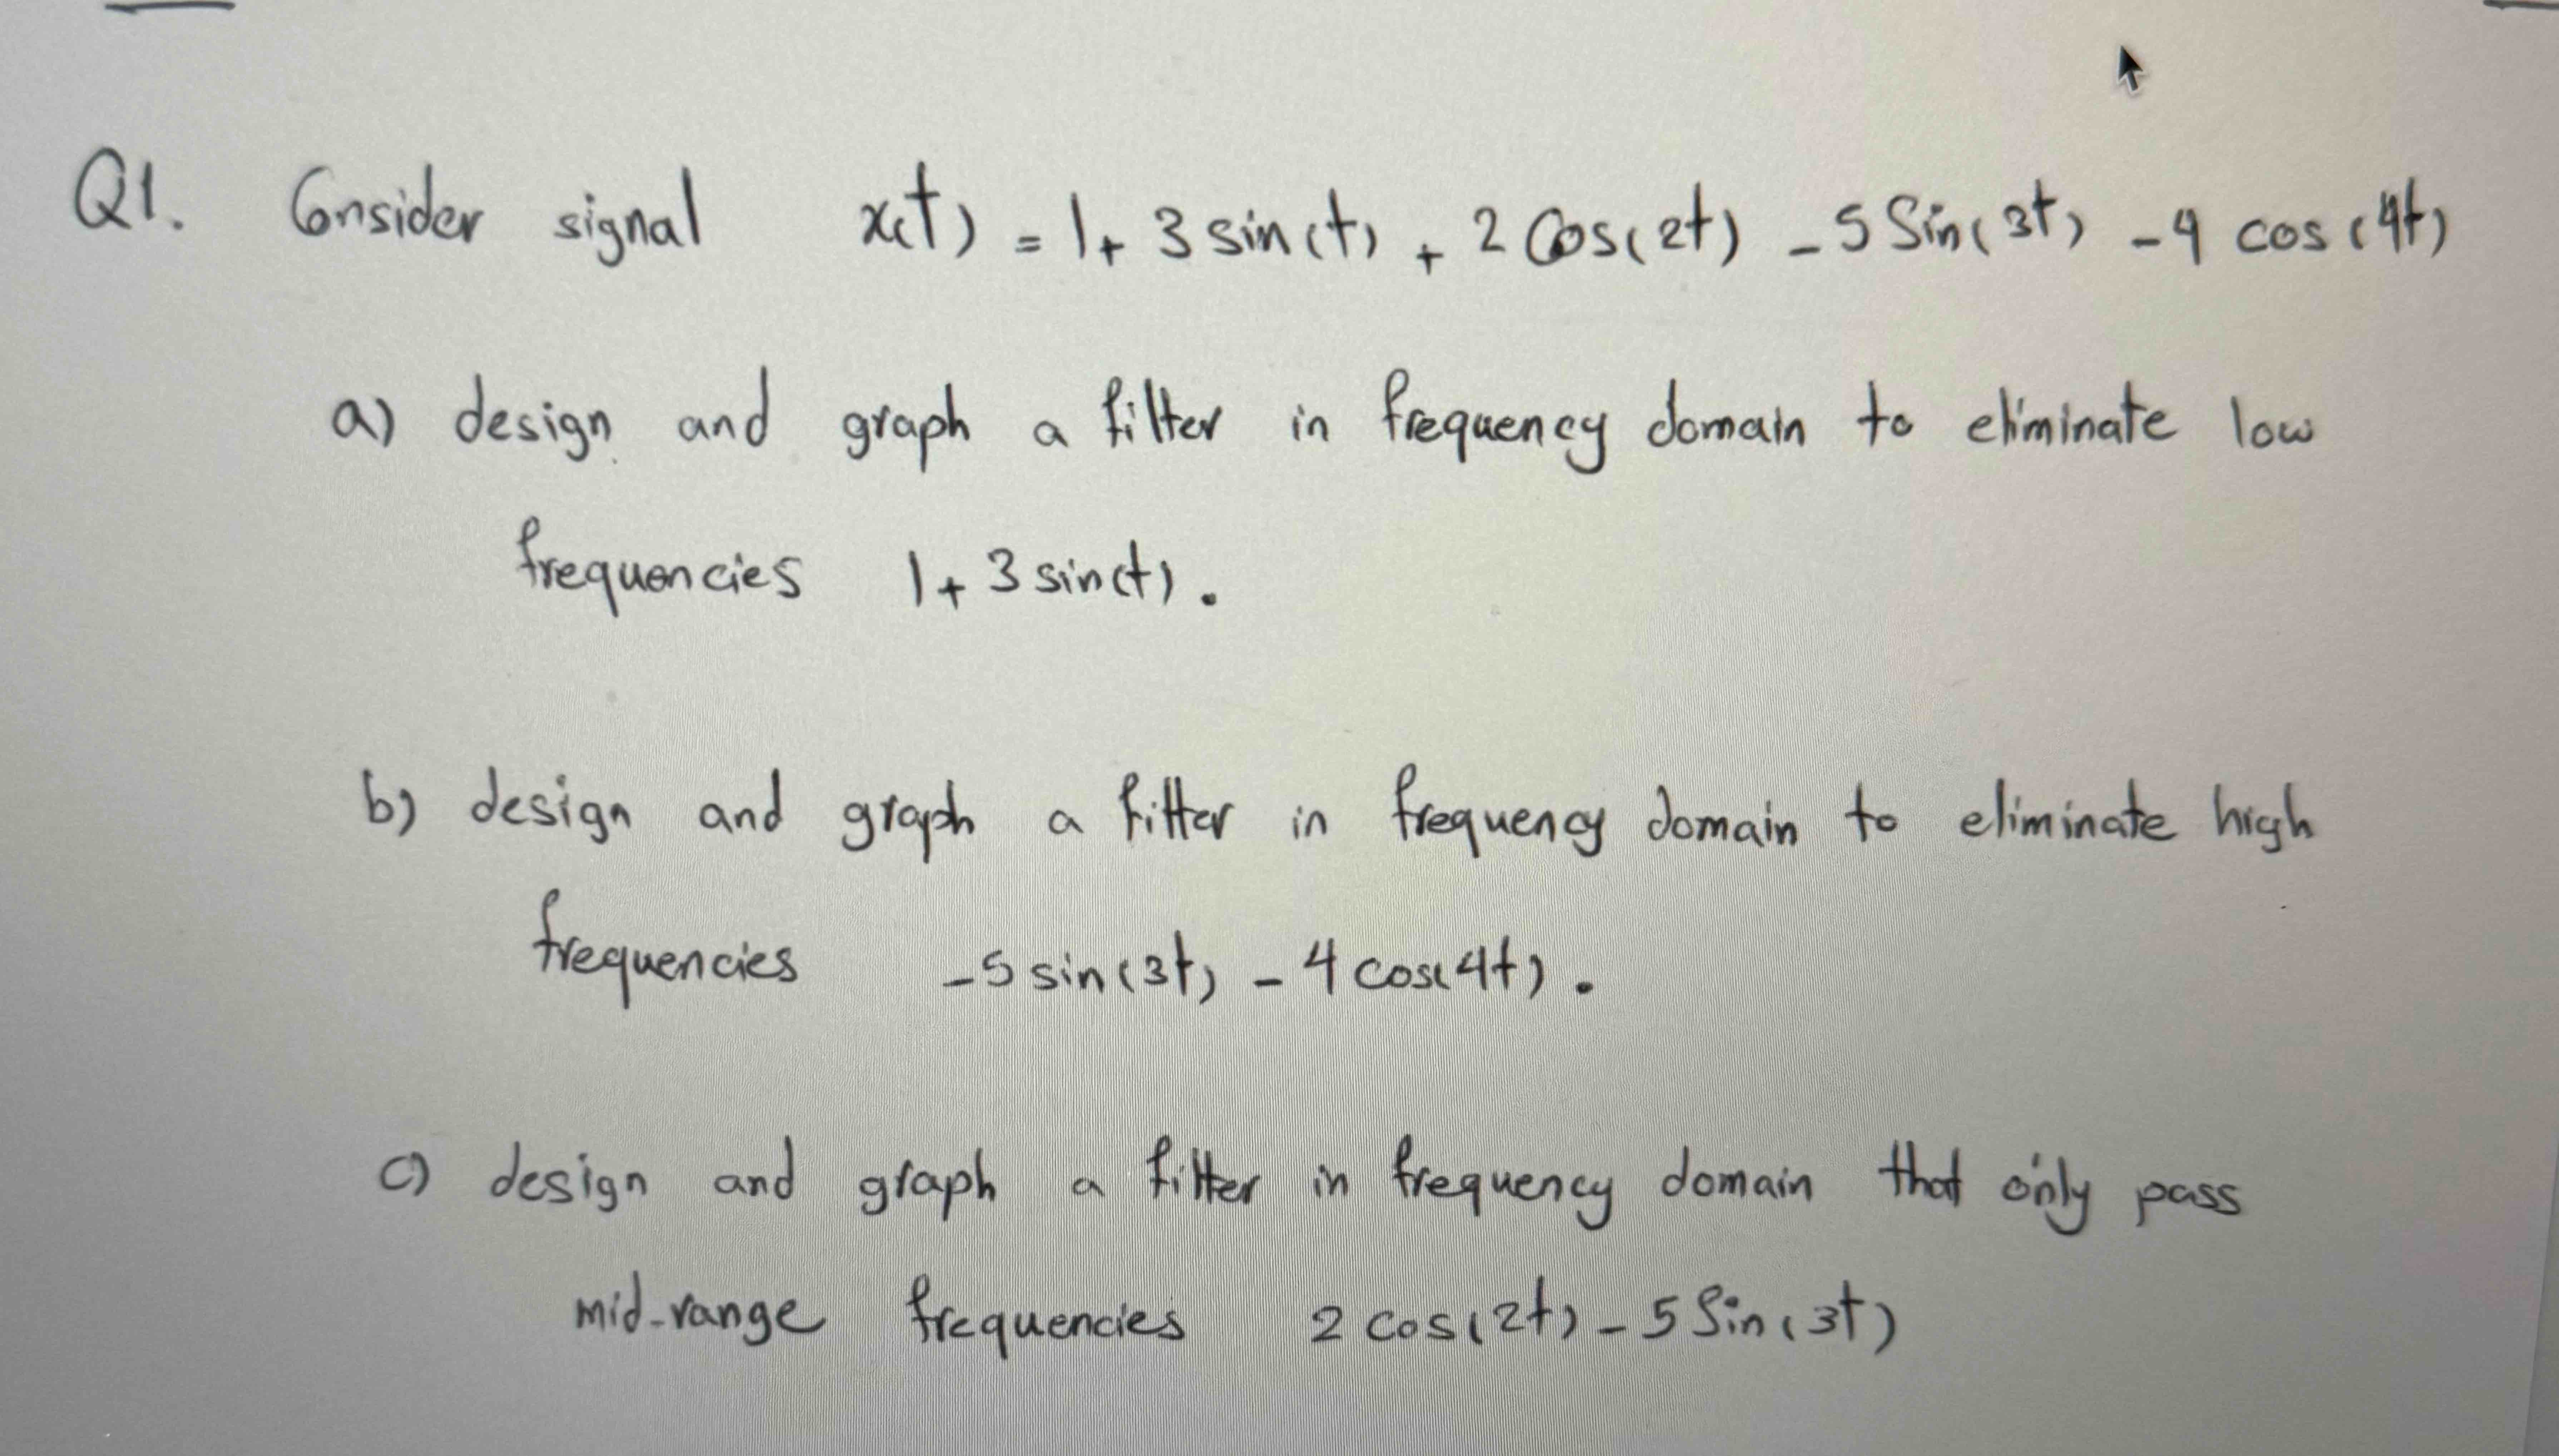 Q1. Consider signal x(t) = 1 + 3 sin(t) + 2 Cos(2t) - 5 Sin(3t) - 4 cos(4t)
a) design and graph a filter in frequency domain to eliminate low
frequencies 1 + 3 sin(t).
b) design and graph a filter in frequency domain to eliminate high
frequencies -5 sin(3t) - 4 cos(4t).
c) design and graph a filter in frequency domain that only pass
mid-range frequencies 2 cos(2t) - 5 Sin(3t)